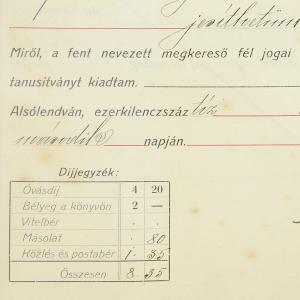 Miről, a fent nevezett megkereső fél jogai
tanusitványt kiadtam.
Alsólendván, ezerkilenczszáz tíz
második napján.
Díjjegyzék:
Óvásdíj 4 20
Bélyeg a könyvön 2 —
Vitelbér . .
Másolat . 80
Közlés és postabér 1 . 35
Összesen 8 . 35